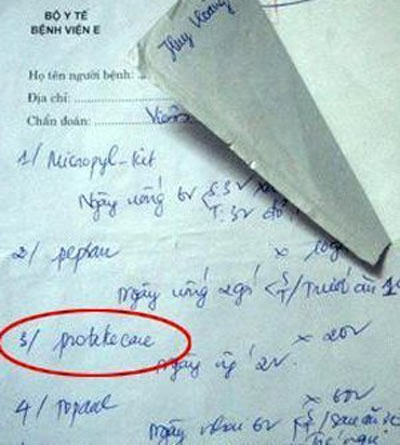 BỘ Y TẾ
BỆNH VIỆN E
Huy Hoàng
Họ tên người bệnh:
Địa chỉ:
Chẩn đoán: Viêm
1/ Micropyl-kit
Ngày uống 6v S: 3v
T: 3v
2/ pepsan x 10gói
Ngày uống 2gói S/T/trước ăn 1
3/ protekcare x 20v
ngày ug 2v.
4/ x 60v
ngày 6v S/T/sau ăn